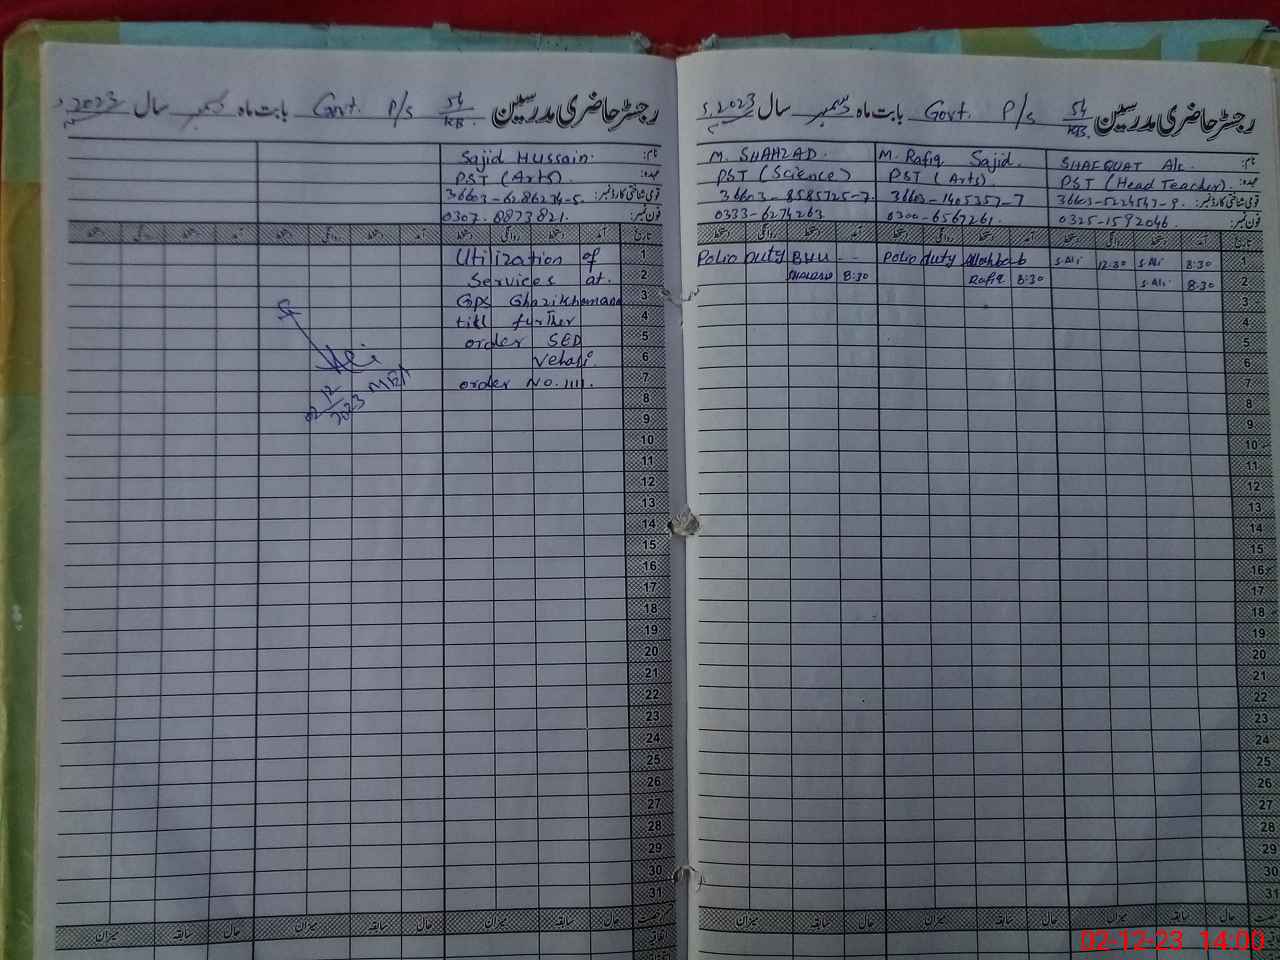 رجسٹر حاضری مدرسین 54/KB. Govt. P/s بابت ماہ دسمبر سال 2023
نام: SHAFQUAT Ali. M. Rafiq Sajid. M. SHAHZAD.
عہدہ: PST (Head Teacher). PST (Arts). PST (Science)
قومی شناختی کارڈ نمبر:
فون نمبر: 0325-1592046. 0300-6567261. 0333-6274263
تاریخ آمد دستخط روانگی دستخط آمد دستخط روانگی دستخط آمد دستخط روانگی دستخط
1 8:30 S.Ali 12:30 S.Ali Polio duty Polio Duty BHU --
2 8:30 S.Ali 8:30 Rafiq 8:30
3
4
5
6
7
8
9
10
11
12
13
14
15
16
17
18
19
20
21
22
23
24
25
26
27
28
29
30
31
حال سابقہ میزان حال سابقہ میزان حال سابقہ میزان
رجسٹر حاضری مدرسین 54/KB. Govt. P/s بابت ماہ دسمبر سال 2023
نام: Sajid Hussain.
عہدہ: PST (Arts).
قومی شناختی کارڈ نمبر: 36603-6286274-5.
فون نمبر: 0307-8873821.
تاریخ آمد دستخط روانگی دستخط آمد دستخط روانگی دستخط آمد دستخط روانگی دستخط
1 Utilization of
2 Services at.
3 Gps Ghazikhanana
4 till further
5 order SED
6 Vehari.
7 order No. 1111.
8
9
10
11
12
13
14
15
16
17
18
19
20
21
22
23
24
25
26
27
28
29
30
31
حال سابقہ میزان حال سابقہ میزان حال سابقہ میزان
02/12/2023 MEA
02-12-23 14:00